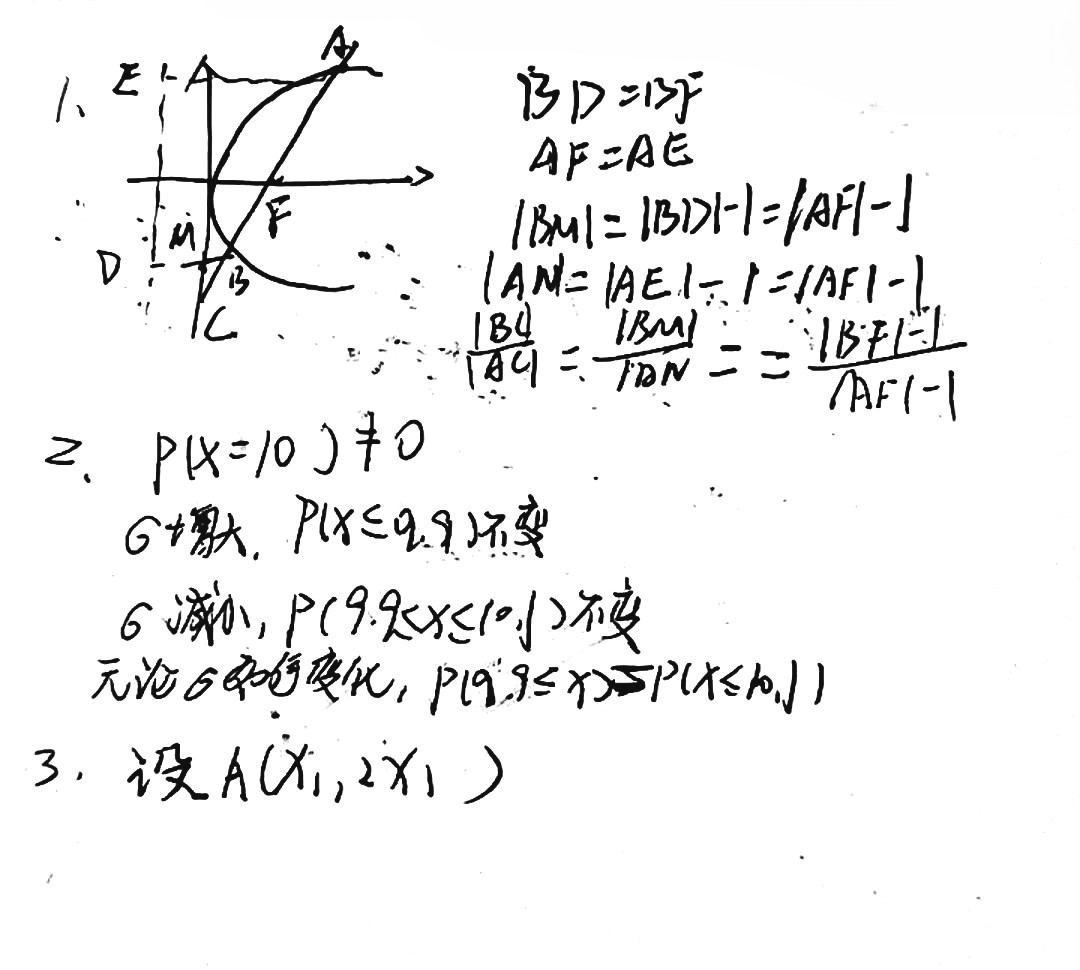 1、
E A A
F
M
D B
C
BD=BF
AF=AE
|BM|=|BD|-1=|AF|-1
|AN|=|AE|-1=|AF|-1
|BC|/|AC| = |BM|/|AN = = |BF|-1/|AF|-1
2、 P(X=10)≠0
σ增大, P(X≤9.9)不变
σ减小, P(9.9≤X≤10.1)不变
无论σ如何变化, P(9.9≤X)=P(X≤10.1)
3. 设A(X₁,2X₁)